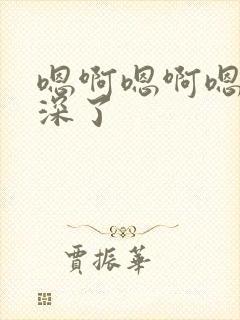 嗯啊嗯啊嗯
深了
贾振华